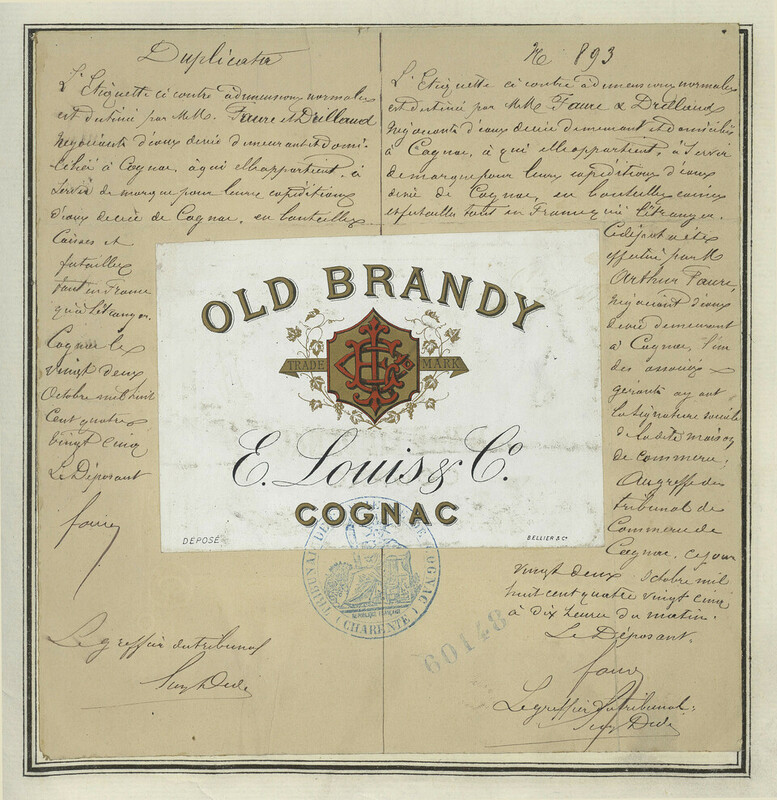 Duplicata
L'Etiquette ci contre à dimensions normales
est destinée par MM. Faure et Drilland
négociants d'eaux de vie demeurant et domi-
ciliés à Cognac, à qui elle appartient, à
servir de marque pour leurs expéditions
d'eaux de vie de Cognac, en bouteilles
Caisses et
futailles
tant en France
qu'à l'étranger.
Cognac le
vingt deux
Octobre mil huit
Cent quatre
vingt cinq
Le Déposant
faure
Le greffier du tribunal
N. 893
L'Etiquette ci contre à dimensions normales
est destinée par MM. Faure & Drilland
négociants d'eaux de vie demeurant et domiciliés
à Cognac, à qui elle appartient, à servir
de marque pour leurs expéditions d'eaux
de vie de Cognac, en bouteilles caisses
et futailles tant en France qu'à l'étranger.
Ce dépôt a été
effectué par M
Arthur Faure,
négociant d'eaux
de vie demeurant
à Cognac, l'un
des associés
gérants ayant
la signature sociale
de la dite maison
de commerce,
Au greffe du
tribunal de
Commerce de
Cognac, ce jour
vingt deux Octobre mil
huit cent quatre vingt cinq
à dix heures du matin.
Le Déposant.
faure
Le greffier du tribunal:
OLD BRANDY
TRADE MARK
E. Louis & Co.
COGNAC
DEPOSÉ
BELLIER & Co
TRIBUNAL DE COMMERCE DE COGNAC
RÉPUBLIQUE FRANÇAISE
(CHARENTE)
60148